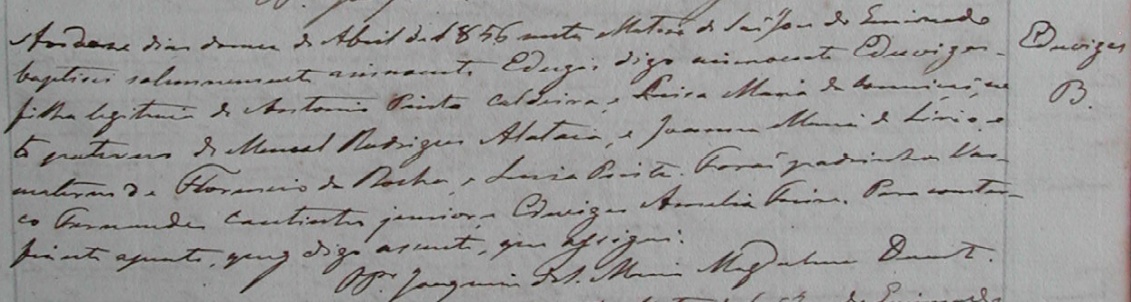 Aos doze dias do mez de Abril de 1856 nesta Matriz de São Jose do
baptisei solemnemente a innocente Edurgis digo a innocente Eduviges
filha legitima de Antonio Pinto Caldeira, e Luisa Maria de
to paterna de Manoel Rodrigues, e Joanna Maria de Lirio, e
materna de Florencio da Rocha, e Luzia Pinta. Forão padrinhos Vas-
co Fernandes junior, e Eduviges Amalia Freire. Para constar
fiz este digo assento, que assignei.
Joaquim de S. Maria Magdalena Duarte.
Eduviges
B.